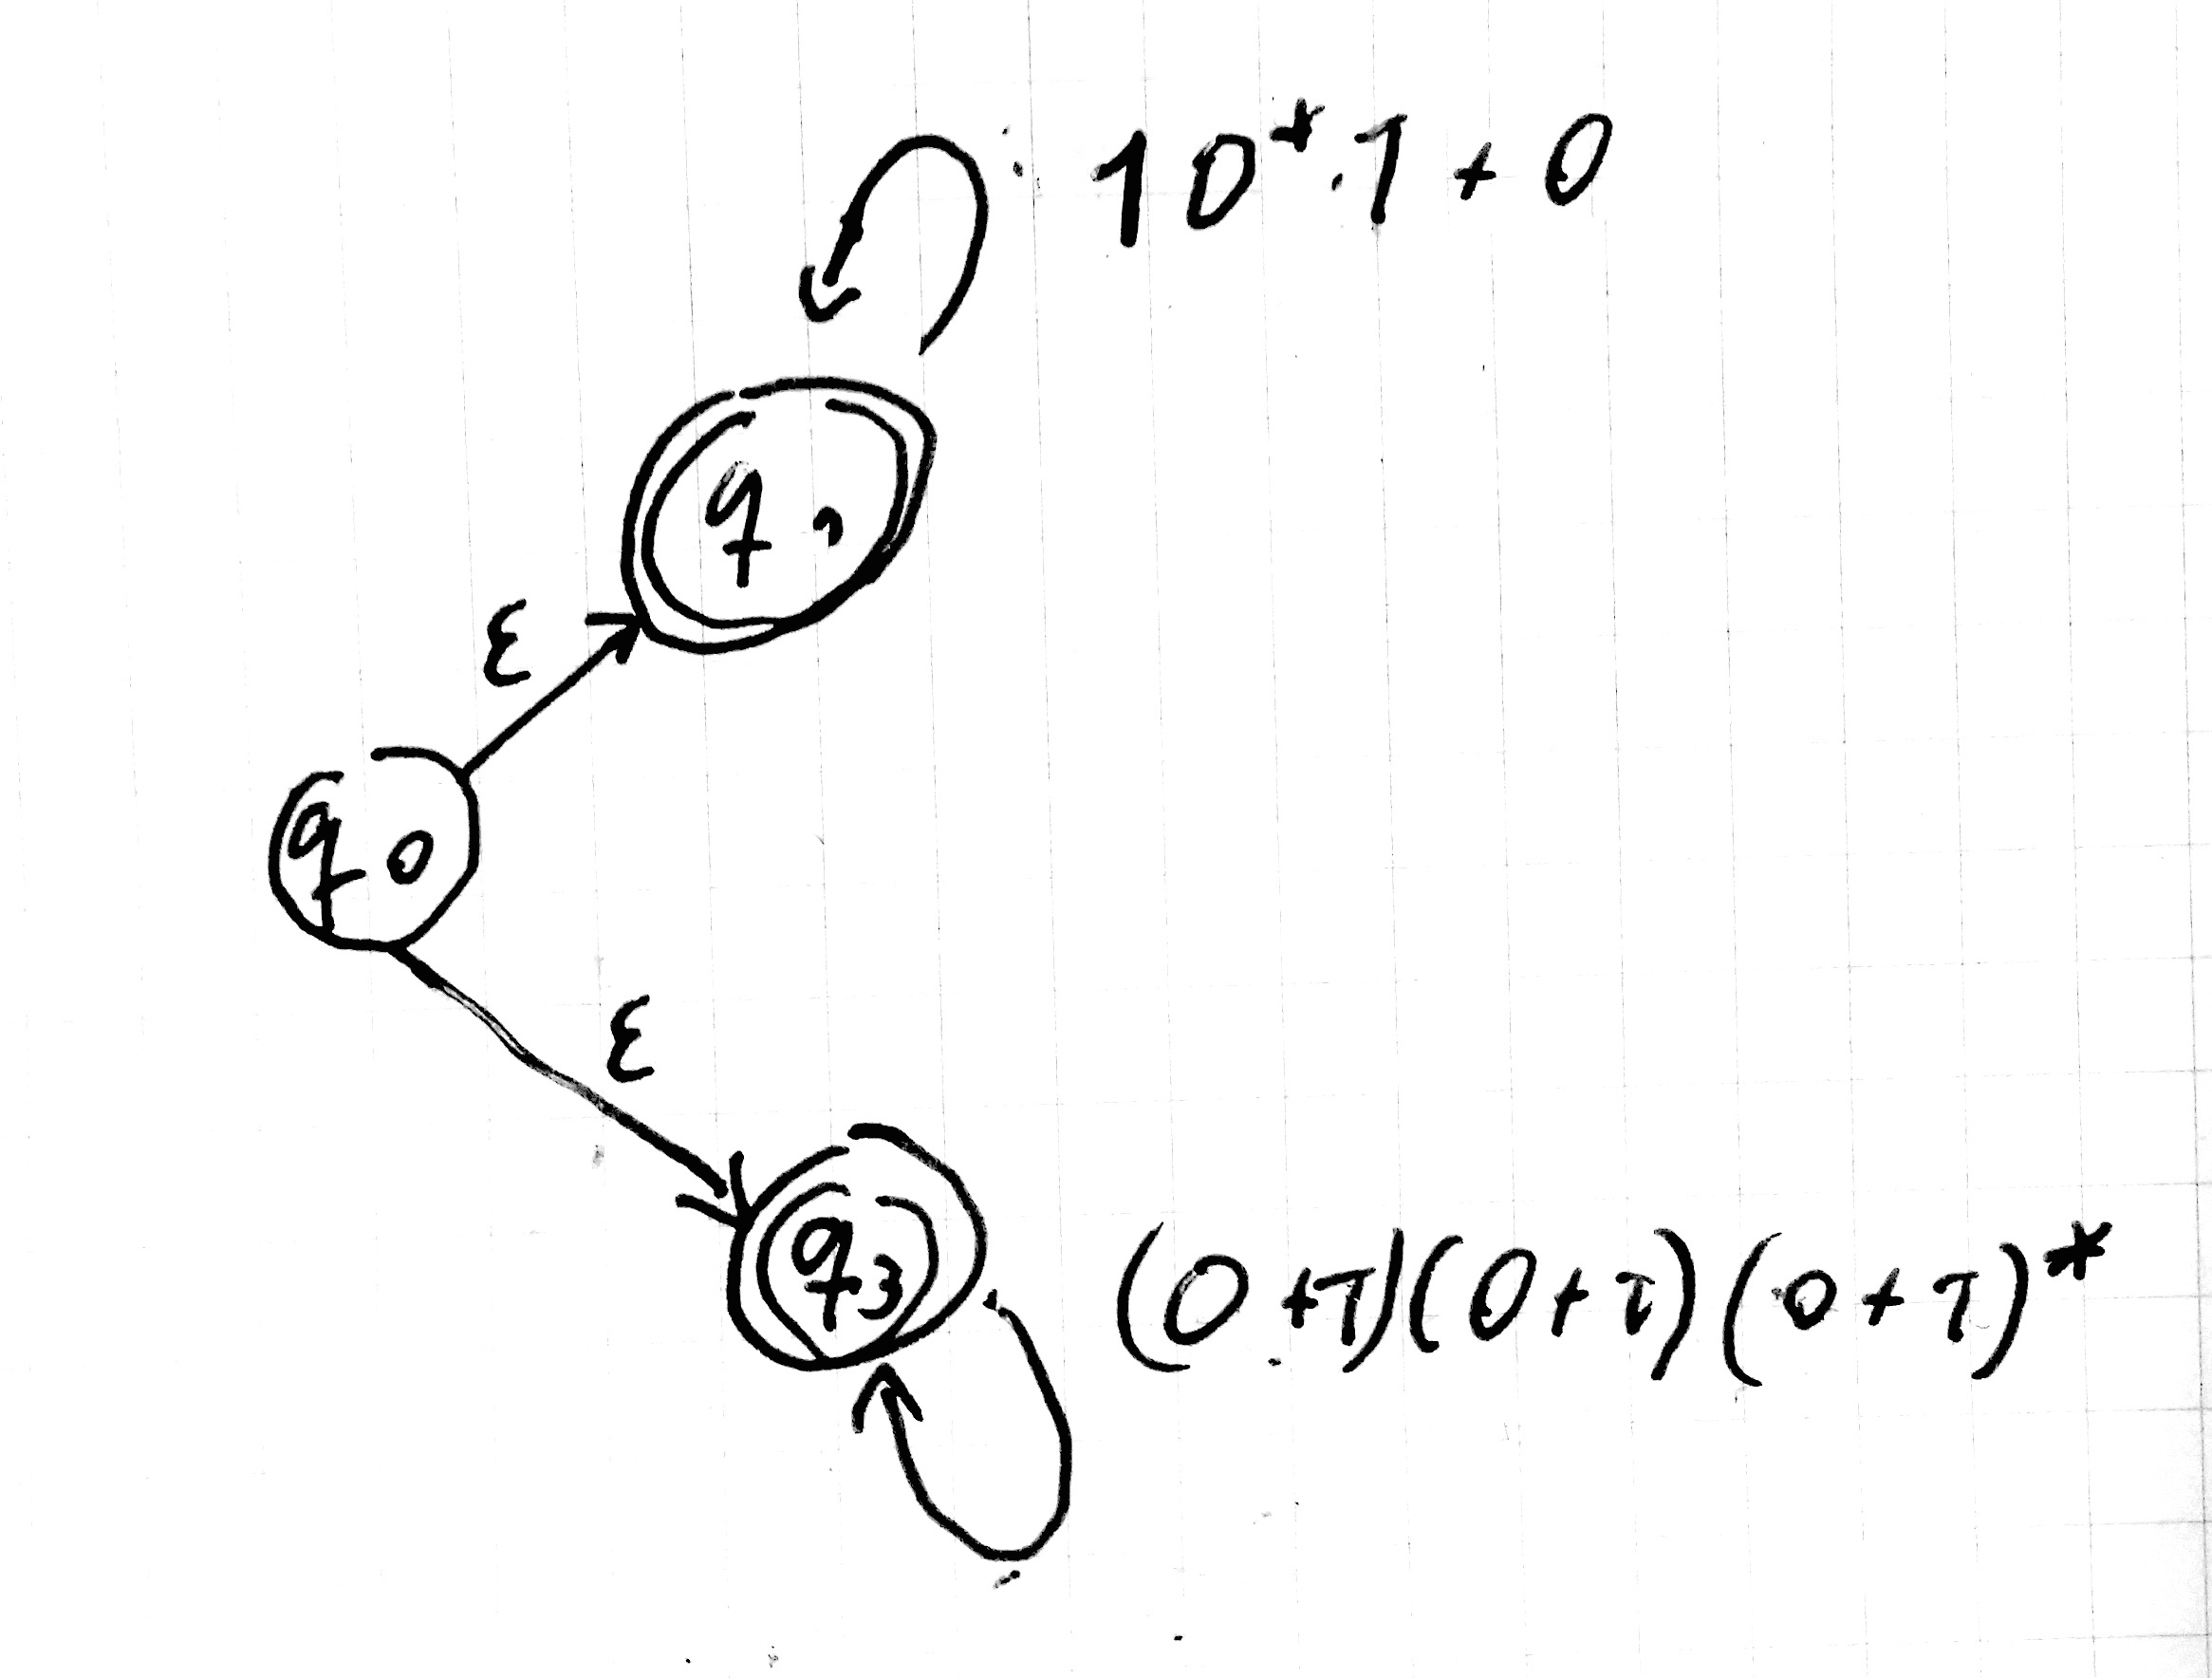 10*.1+0
q1
ε
q0
ε
q3
(0+1)(0+1)(0+1)*